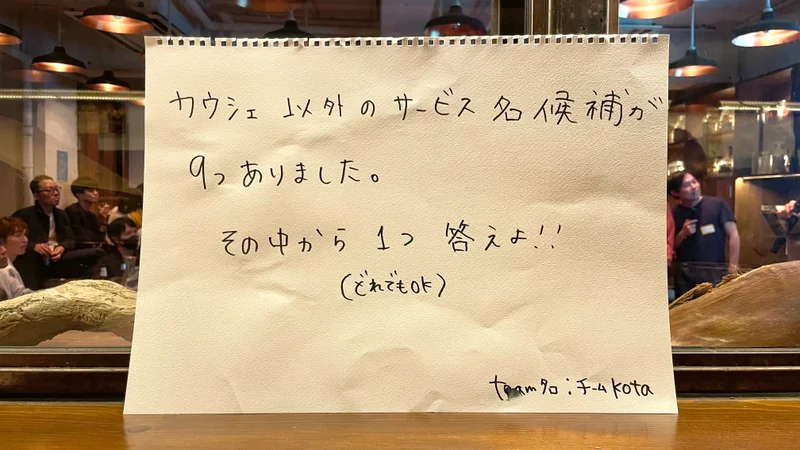 カウシェ 以外のサービス名候補が
9つありました。
その中から 1つ 答えよ!!
(どれでもOK)
team名:チームkota